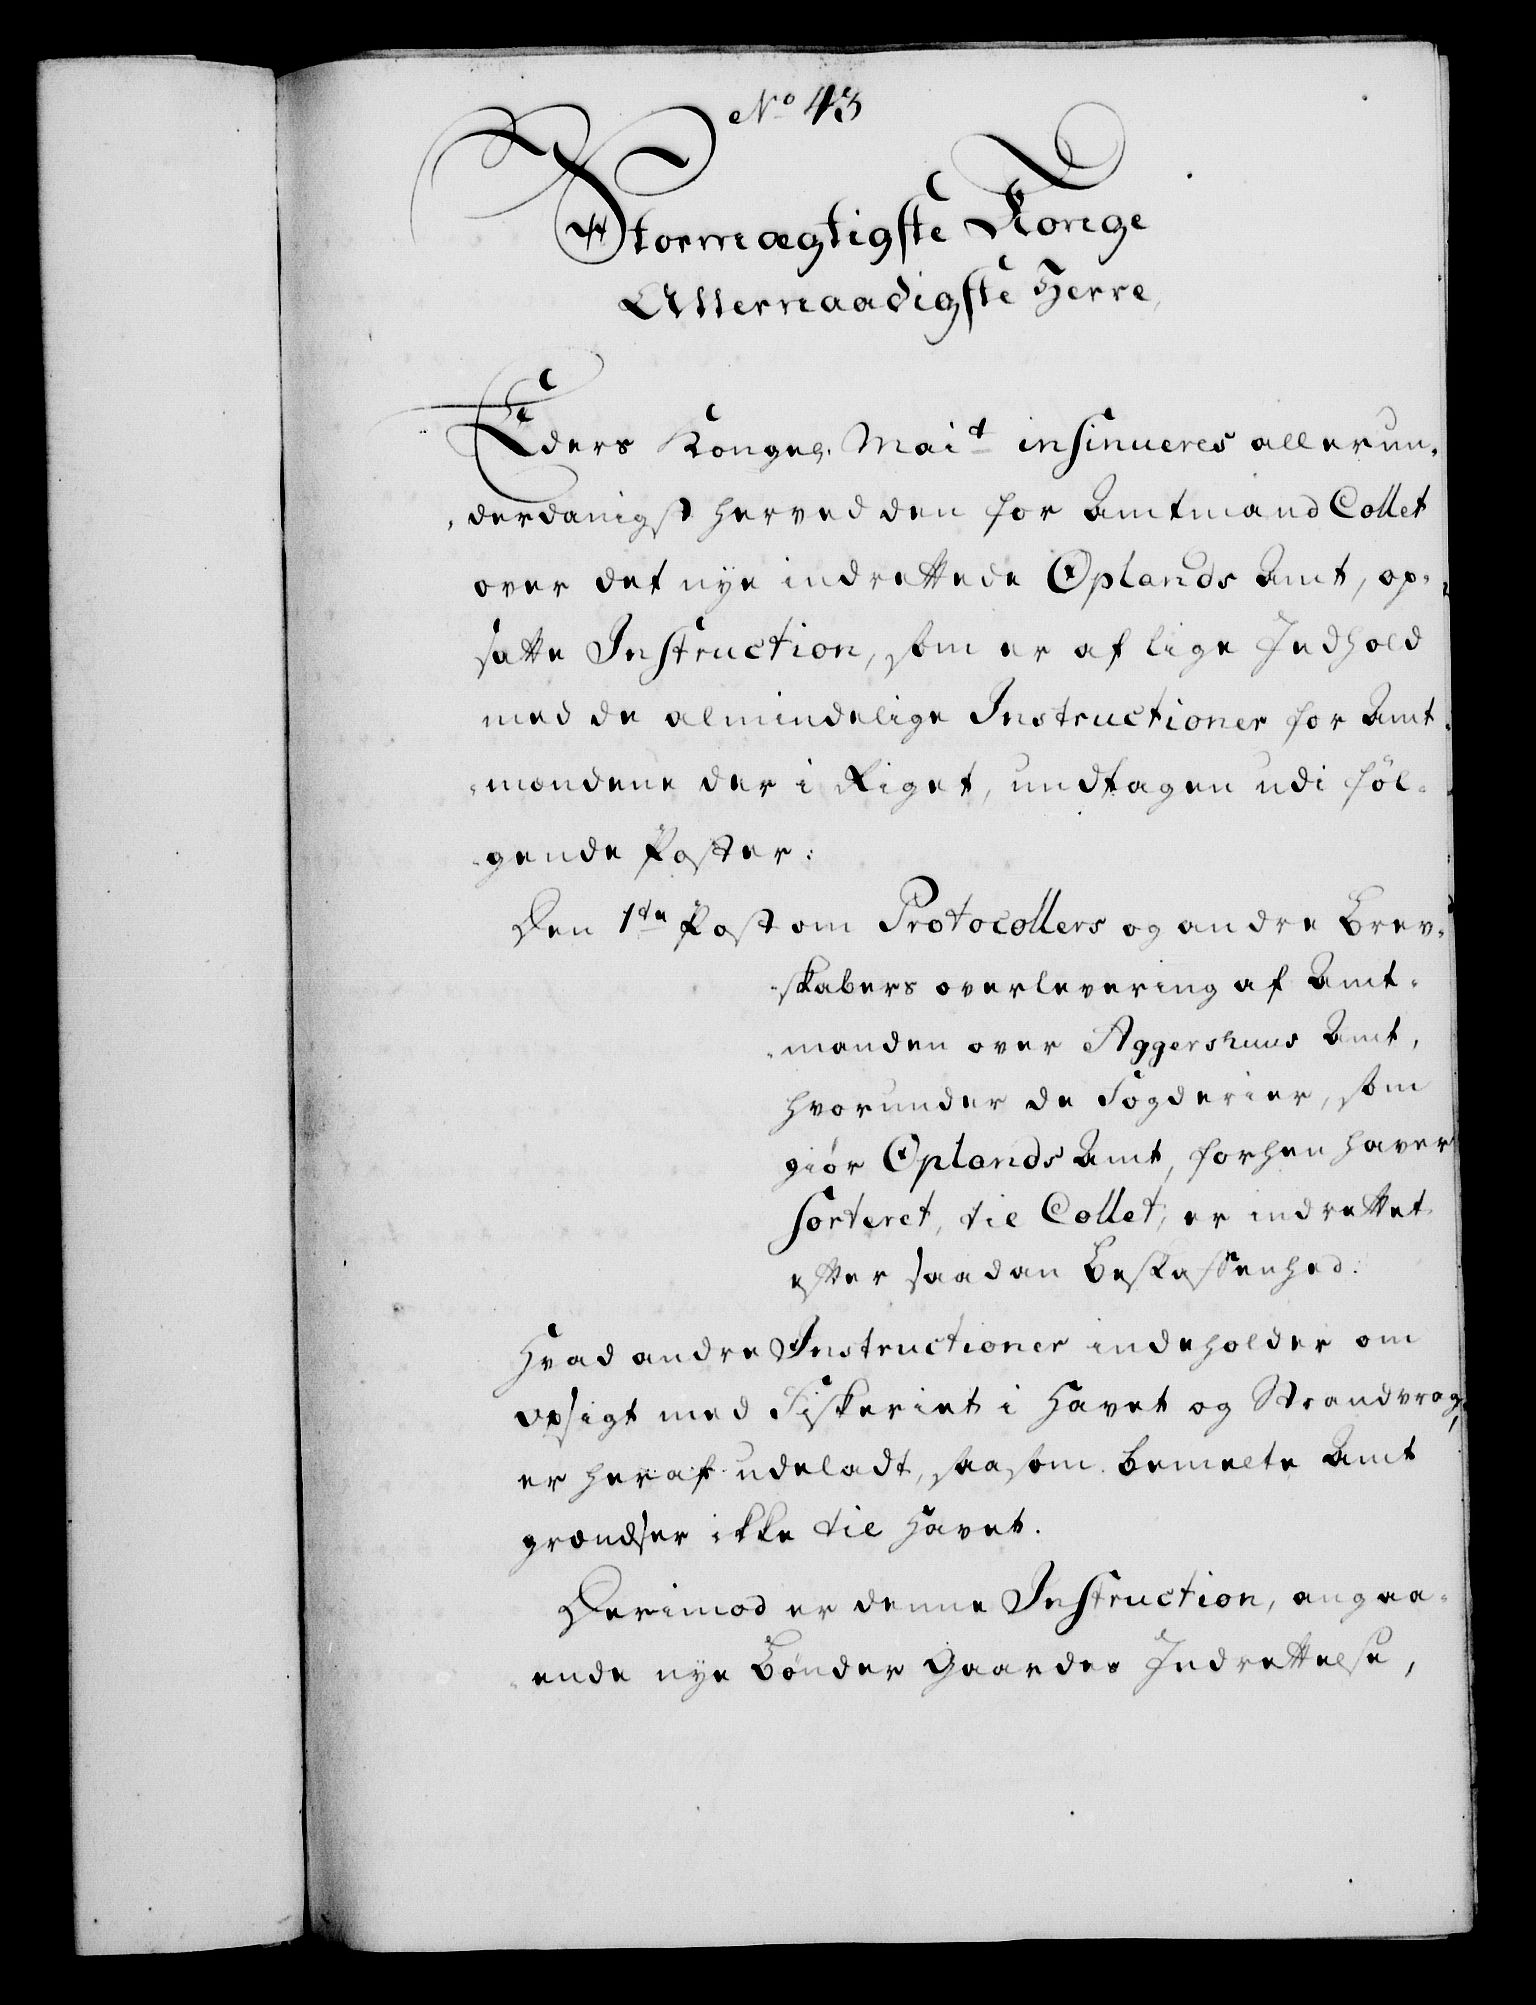 No 43
Stormægtigste Konge
Allernaadigste Herre,
Eders Kongel. Mait insinueres allerun-
derdanigst herved den for Amtmand Collet
over det nye indrettede Oplands Amt, op-
satte Instruction, som er af lige Indhold
med de almindelige Instructioner for Amt-
mændene der i Riget, undtagen udi føl-
gende Poster:
Den 1te Post om Protocollers og andre Brev-
skabers overlevering af Amt-
manden over Aggershuus Amt,
hvorunder de Fogderier, som
giør Oplands Amt, forhen haver
sorteret, til Collet, er indrettet
efter saadan Beskaffenhed.
Hvad andre Instructioner indeholder om
opsigt med Fiskeriet i Havet og Strandvrag,
er heraf udeladt, saasom bemelte Amt
grændser ikke til Havet.
Derimod er denne Instruction, angaa-
ende nye Bønder Gaardes Indrettelse,